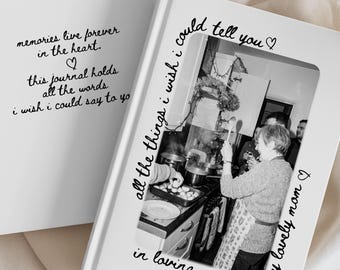 memories live forever
in the heart.
♡
this journal holds
all the words
i wish i could say to yo
all the things i wish i could tell you ♡
in loving
lovely mom ♡